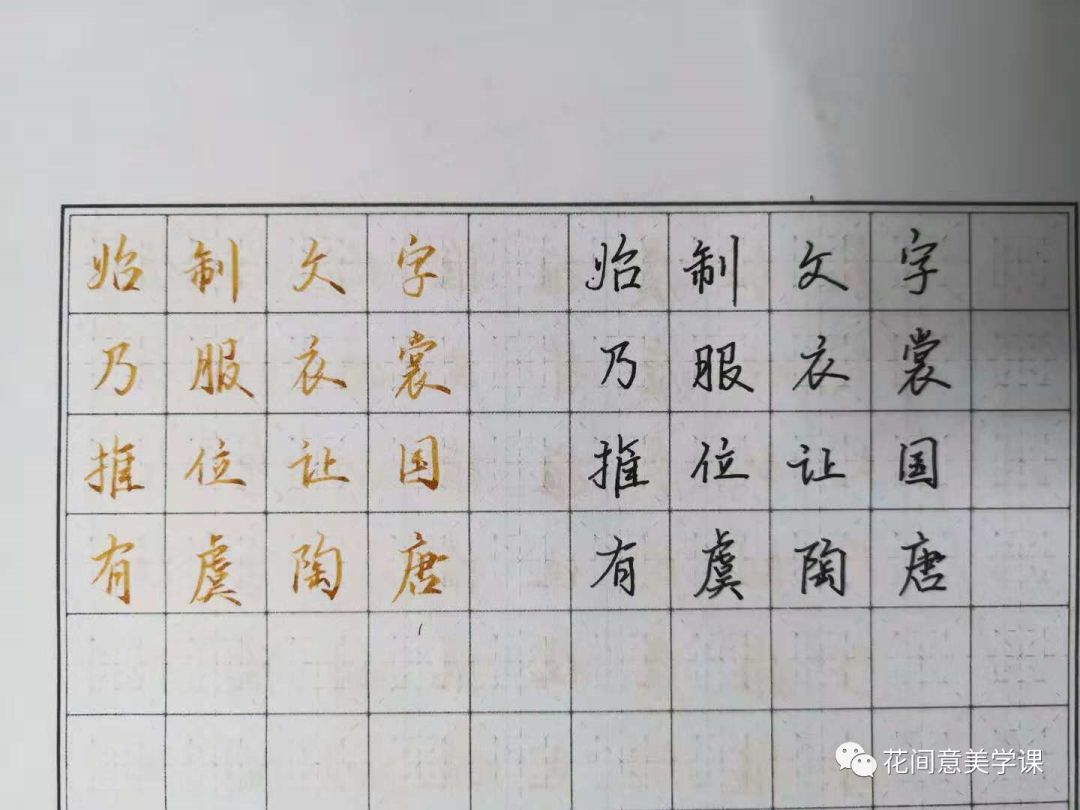 始制文字 始制文字
乃服衣裳 乃服衣裳
推位让国 推位让国
有虞陶唐 有虞陶唐
花间意美学课